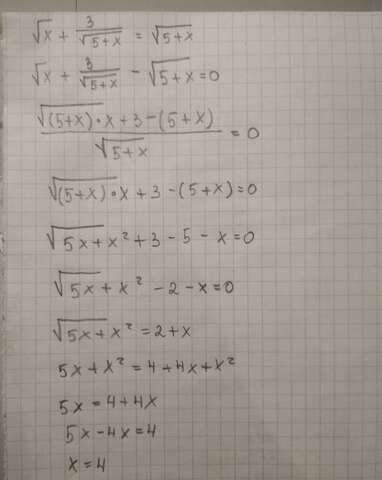 √x + 3/√(5+x) = √(5+x)
√x + 3/√(5+x) - √(5+x) = 0
(√((5+x)·x) + 3 - (5+x))/√(5+x) = 0
√((5+x)·x) + 3 - (5+x) = 0
√(5x+x²) + 3 - 5 - x = 0
√(5x+x²) - 2 - x = 0
√(5x+x²) = 2+x
5x + x² = 4 + 4x + x²
5x = 4 + 4x
5x - 4x = 4
x = 4